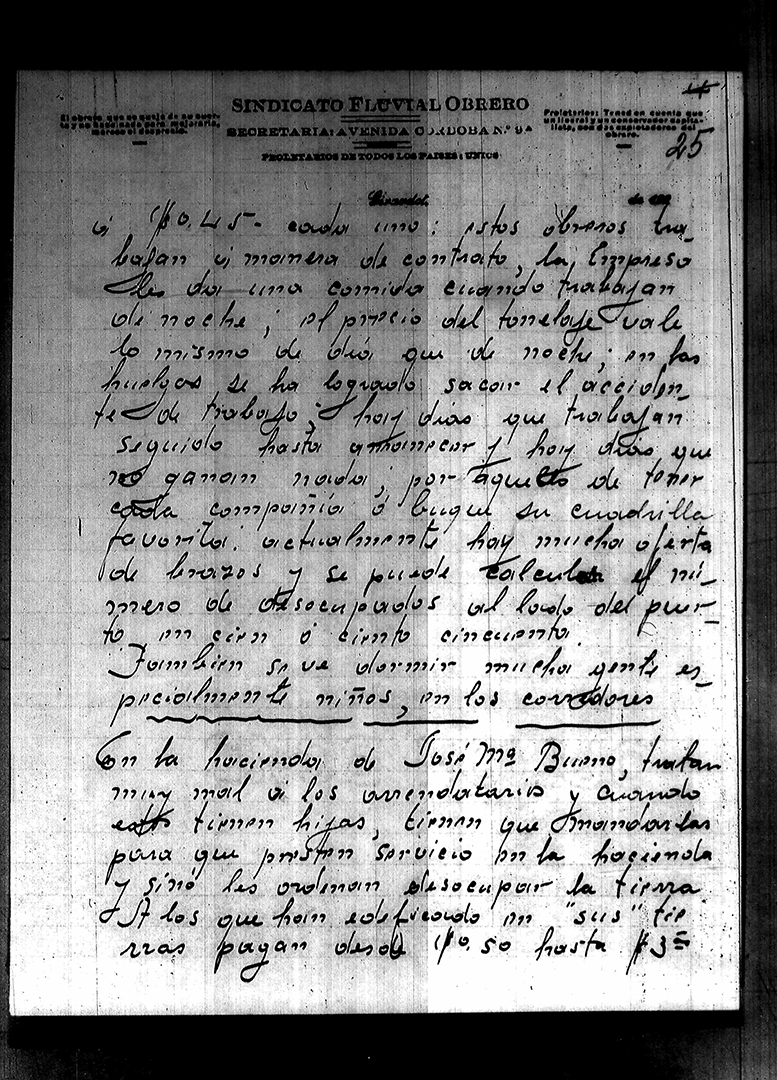 4
SINDICATO FLUVIAL OBRERO
El obrero que se queja de su suer-
te y no hace nada para mejorarla,
merece el desprecio.
SECRETARIA: AVENIDA CORDOBA N.º 9A
PROLETARIOS DE TODOS LOS PAISES: UNIOS
Proletarios: Tened en cuenta que
un liberal y un conservador capita-
lista, son dos explotadores del
obrero.
25
Girardot, de 192
á $0.45- cada uno: estos obreros tra-
bajan á manera de contrato, la Empresa
les da una comida cuando trabajan
de noche; el precio del tonelaje vale
lo mismo de día que de noche; en las
huelgas se ha logrado sacar el acciden-
te de trabajo; hay dias que trabajan
seguido hasta amanecer y hay dias que
no ganan nada, por aquello de tener
cada compañia ó buque su cuadrilla
favorita: actualmente hay mucha oferta
de brazos y se puede calcular el nú-
mero de desocupados al lado del puer-
to en cien ó ciento cincuenta
Tambien se ve dormir mucha gente es-
pecialmente niños, en los corredores
En la hacienda de José Mª Bueno, tratan
muy mal á los arrendatarios y cuando
tienen hijas, tienen que mandarlas
para que presten servicio en la hacienda
y sinó les ordenan desocupar la tierra
A los que han edificado en "sus" tie
rras pagan desde $0.50 hasta $3=